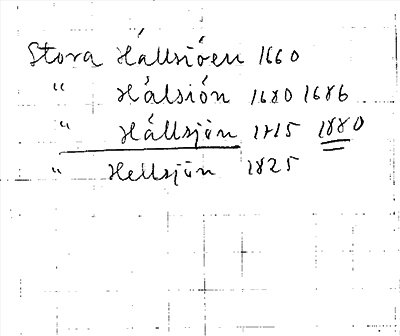 Stora Hållsiöen 1660
" Hålsión 1680 1686
" Hållsjön 1715 1880
" Hellsjön 1825